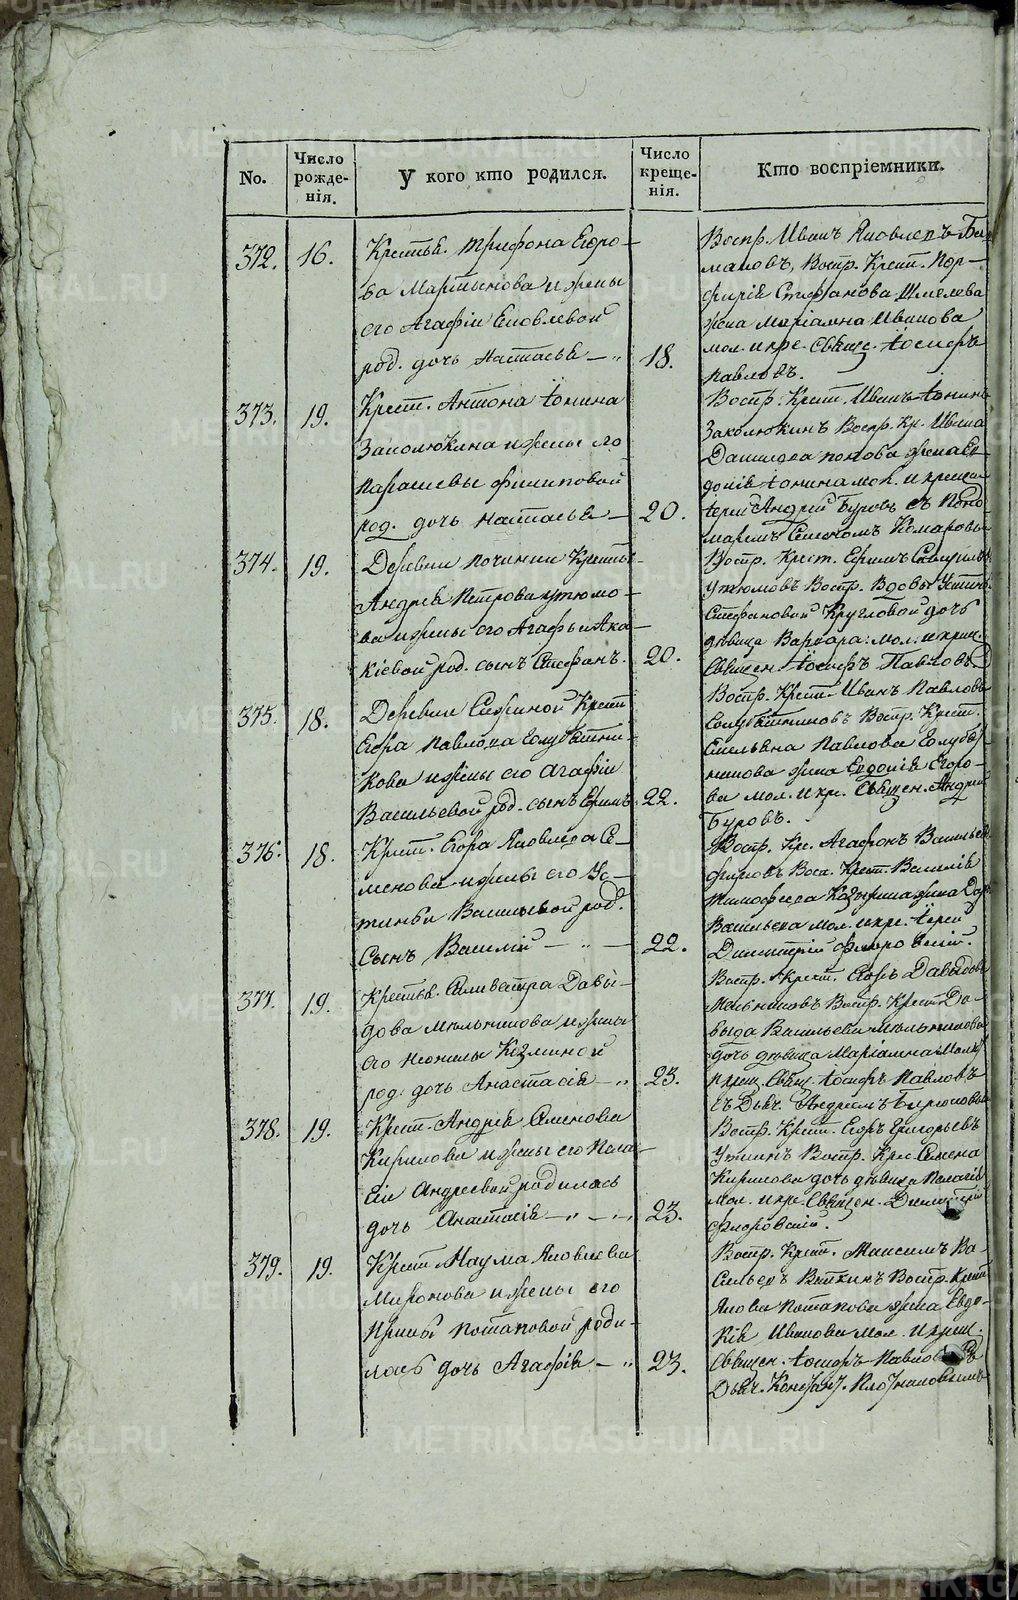 No.
Число рожде- нія.
У кого кто родился.
Число креще- нія.
Кто воспріемники.
372. 16.
Крестья. Трифона Егоро-
ва Мартынова и жены
его Агафіи Яковлевой
род. дочь Настасья
18.
Воспр. Иванъ Яковлевъ
Воспр. Крест. Пор-
фирій Стефанова Шмелева
жена Маріамна Иванова
мол. и кре. Свяще. Іосифъ
Павловъ.
373. 19.
Крест. Антона Іонина
Заколюкина и жены его
Парасковы Филиповой
род. дочь Настасья
20.
Воспр. Крест. Иванъ Іонинъ
Заколюкинъ Воспр. Кр. Ивана
Данилова Попова жена Ев-
докія Іонина мол. и крещ.
Іерей Андрей Буровъ съ Поно-
маремъ Комаровы
374. 19.
Деревни Починки Крестья-
Андрея Петрова Утюмо-
ва и жены его Агафьи Ака-
кіевой род. сынъ Стефанъ.
20.
Воспр. Крест. Ефимъ
Утюмовъ Воспр. Вдовы Устинь
Стефановой Кругловой дочь
дѣвица Варвара: мол: и крещ.
Священ. Іосифъ Павловъ
375. 18.
Деревни Крест
Егора Павлова Голубятни-
кова и жены его Агафіи
Васильевой род. сынъ Ефимъ
22.
Воспр. Крест. Иванъ Павловъ
Голубятниковъ Воспр. Крест.
Емельяна Павлова Голубят-
никова жена Евдокія Егоро-
ва мол. и кр. Священ. Андрей
Буровъ.
376. 18.
Крест. Егора Яковлева Се-
менова и жены его Ус-
тиньи Васильевой род.
Сынъ Василій
22.
Воспр. Кре. Агафонъ Васильев
Восп. Крест. Василій
Тимофеева жена Дар
Васильева мол. и кре. Іерей
Димитрій Флоровскій.
377. 19.
Крестья. Селивестра Давы-
дова Мельникова и жены
его Неонилы Козминой
род. дочь Анастасія
23.
Воспр. Крест. Егоръ Давыдовъ
Мельниковъ Воспр. Крест Да-
выда Васильева Мельникова
дочь дѣвица Маріамна Мол. и
крещ. Свящ. Іосифъ Павловъ
съ Дьяч. Андреемъ Бирюковы
378. 19.
Крест. Андрея Семенова
Кирилова и жены его Пела-
гіи Андреевой родилась
дочь Анастасія
23.
Воспр. Крест. Егоръ Григорьевъ
Утминъ Воспр. Крес. Семена
Кирилова дочь дѣвица Пелагія
Мол. и кре. Священ. Димитрій
Флоровскій.
379. 19.
Крест. Наума Яковлева
Миронова и жены его
Ирины Потаповой роди-
лась дочь Агафія
23.
Воспр. Крест. Максимъ Ва-
сильевъ Вяткинъ Воспр. Крест
Якова Потапова жена Евдо-
кія Иванова мол. и крещ.
Священ. Іосифъ Павловъ съ
Дьяч.
METRIKI.GASO-URAL.RU